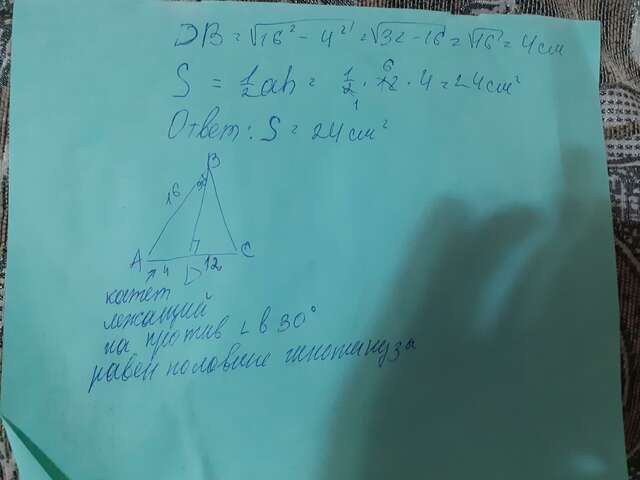 DB = √16² - 4² = √32 - 16 = √16 = 4 см
S = 1/2 ah = 1/2 · 12 · 4 = 24 см²
6
1
Ответ: S = 24 см²
B
16
30°
A
C
4
D
12
катет
лежащий
на против ∠ в 30°
равен половине гипотинуза